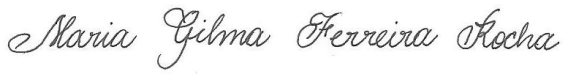 Maria Gilma Ferreira Rocha